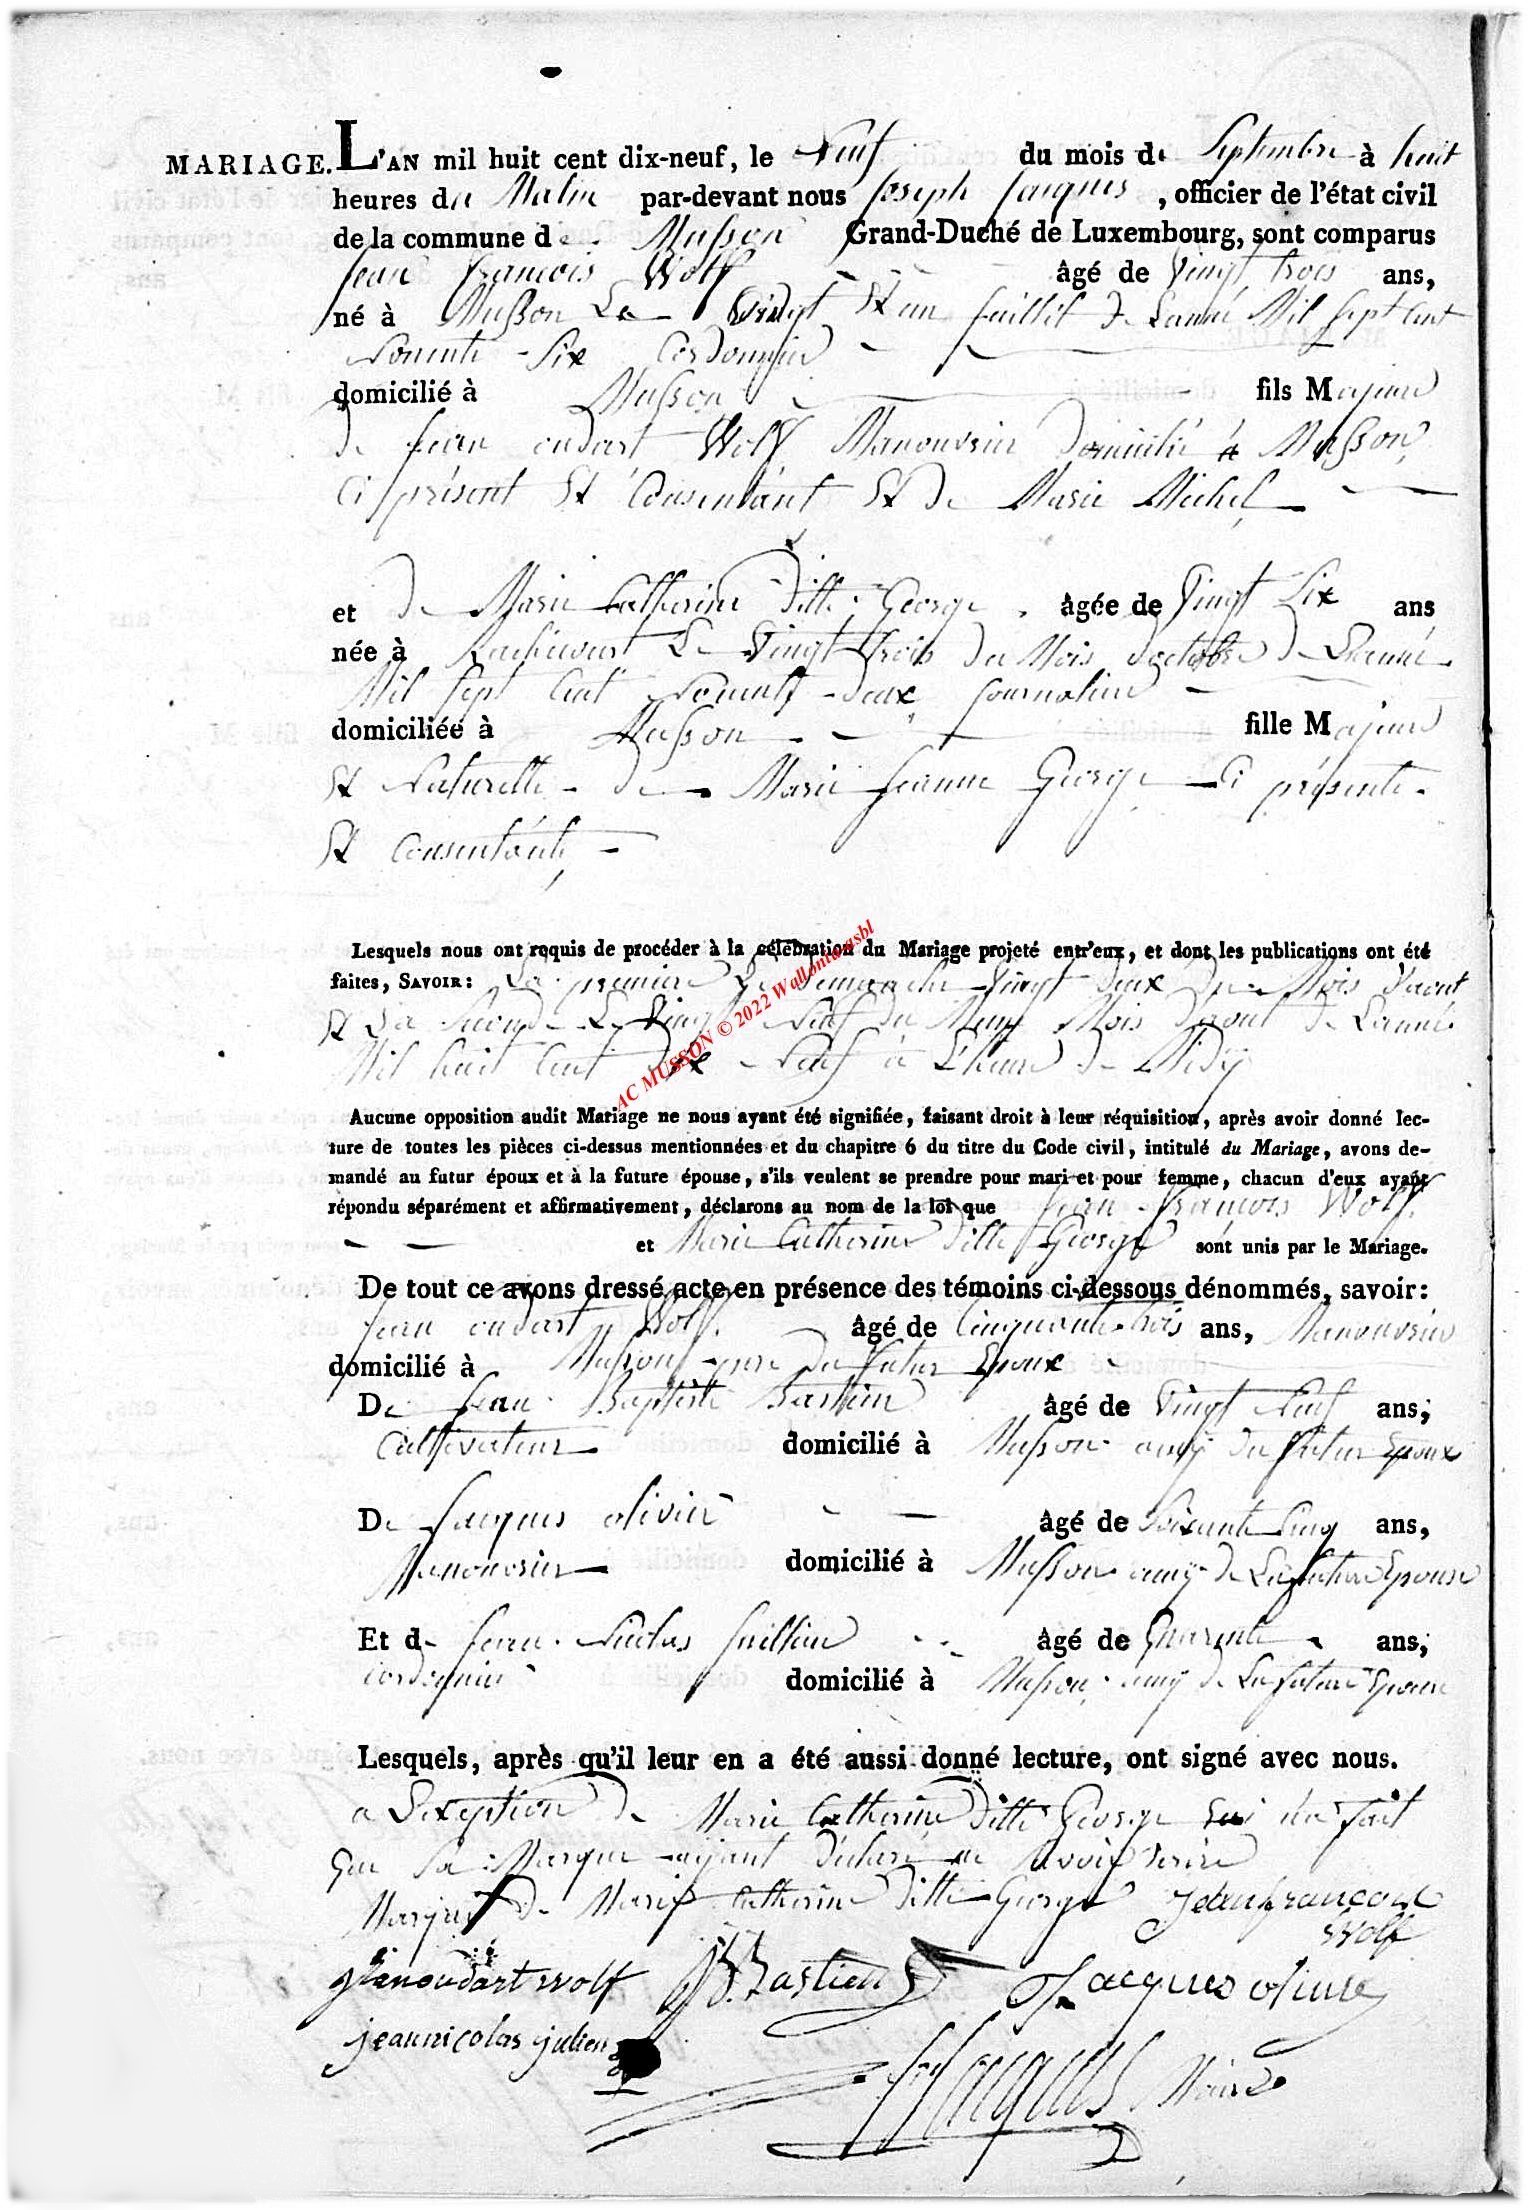 MARIAGE. L'AN mil huit cent dix-neuf, le Neuf du mois de Septembre à huit
heures du Matin par-devant nous Joseph Jacques, officier de l'état civil
de la commune de Musson Grand-Duché de Luxembourg, sont comparus
Jean francois Wolff âgé de Vingt trois ans,
né à Musson Le Vingt Et un Juillet de Lanné Mil Sept Cent
Nonente Six Cordonnier
domicilié à Musson fils Majeur
de Jean oudart Wolff Manouvrier domicilié à Musson,
Ci présent Et Consentant Et de Marie Michel
et de Marie Catherine ditte George âgée de Vingt Six ans
née à Rachecourt Le Vingt trois du Mois doctobre de Lanné
Mil Sept Cent Nonente deux Journaliere
domiciliée à Musson fille Majeure
Et Naturelle de Marie Jeanne George Ci présente
Et Consentante,
Lesquels nous ont requis de procéder à la célébration du Mariage projeté entr'eux, et dont les publications ont été
faites, SAVOIR: La premiere Le Dimanche Vingt deux du Mois d'aout
Et La Seconde Le Vingt Neuf du Meme Mois daout de Lanné
Mil huit Cent dix Neuf à L'heure de Midÿ
Aucune opposition audit Mariage ne nous ayant été signifiée, faisant droit à leur réquisition, après avoir donné lec-
ture de toutes les pièces ci-dessus mentionnées et du chapitre 6 du titre du Code civil, intitulé du Mariage, avons de-
mandé au futur époux et à la future épouse, s'ils veulent se prendre pour mari et pour femme, chacun d'eux ayant
répondu séparément et affirmativement, déclarons au nom de la loi que Jean francois Wolff
et Marie Catherine ditte George sont unis par le Mariage.
De tout ce avons dressé acte en présence des témoins ci-dessous dénommés, savoir:
Jean oudart Wolff âgé de Cinquante trois ans, Manouvrier
domicilié à Musson pere du futur Epoux
De Jean Baptiste Bastien âgé de Vingt Neuf ans;
Cultivateur domicilié à Musson amÿ du futur Epoux
De Jacques olivier âgé de Soixante Cinq ans,
Manouvrier domicilié à Musson amÿ de La future Epouse
Et de Jean Nicolas Juillien âgé de Quarente ans;
Cordonnier domicilié à Musson amÿ de La future Epouse
Lesquels, après qu'il leur en a été aussi donné lecture, ont signé avec nous.
a Lexeption de Marie Catherine ditte George qui n'a fait
que Sa Marque aÿant déclaré ne Savoir Ecrire
Marque de Marie Catherine ditte George Jean francois
wolff
jeanoudart wolff JB Bastien Jacques olivier
jeannicolas julien
J Jacques Maire
AC MUSSON © 2022 Wallonia asbl